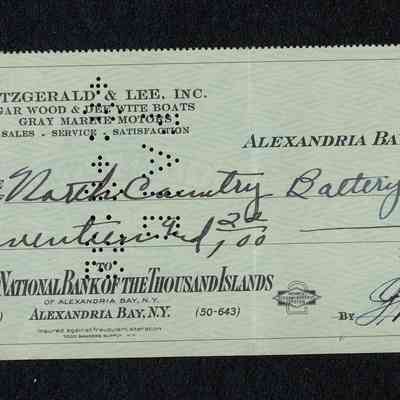 TZGERALD & LEE, INC.
GAR WOOD & DEE WITE BOATS
GRAY MARINE MOTORS
SALES - SERVICE - SATISFACTION
ALEXANDRIA BA
North Country Battery
venteen and /100
TO
NATIONAL BANK OF THE THOUSAND ISLANDS
OF ALEXANDRIA BAY, N.Y.
ALEXANDRIA BAY, N.Y. (50-643)
BY
Insured against fraudulent alteration